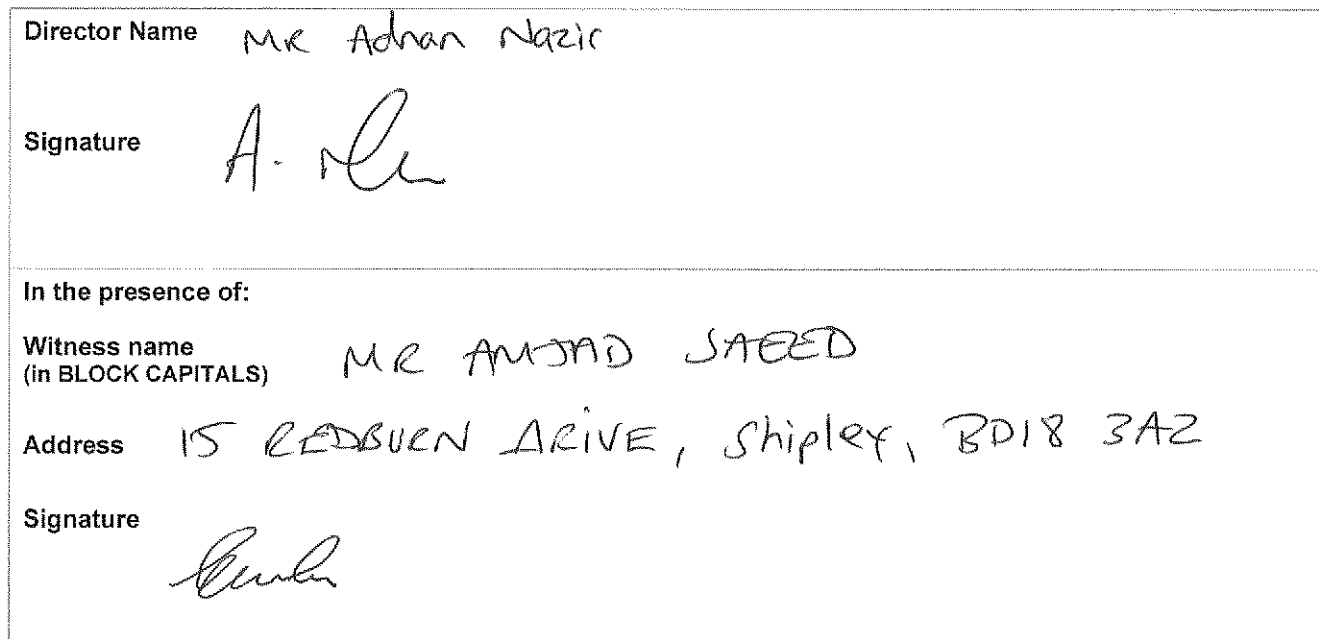 Director Name MR Adnan Nazir
Signature A.
In the presence of:
Witness name
(in BLOCK CAPITALS) MR AMJAD SAEED
Address 15 REDBURN DRIVE, Shipley, BD18 3AZ
Signature